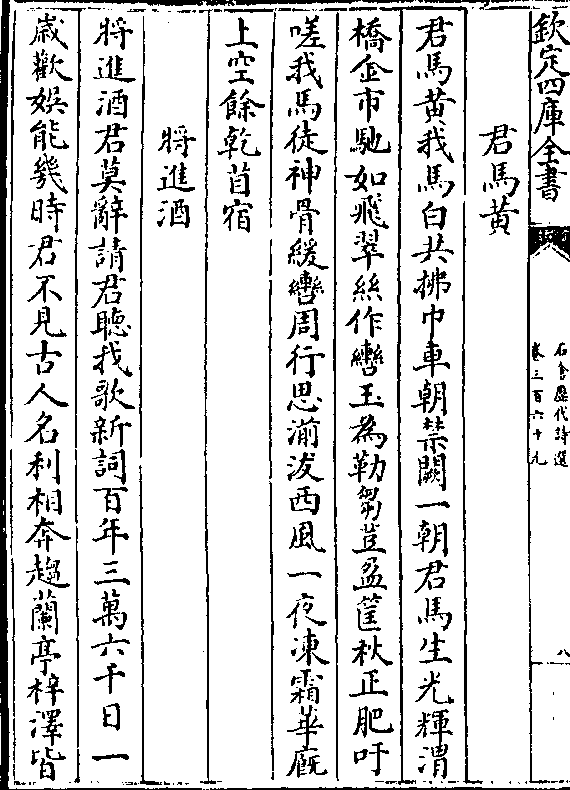 欽定四庫全書
石倉歷代詩選
卷三百六十九
八
君馬黃
君馬黃我馬白共拂巾車朝禁闕一朝君馬生光輝渭
橋金市馳如飛翠絲作轡玉為勒芻荳盈筐秋正肥吁
嗟我馬徒神骨緩轡周行思湔泼西風一夜凍霜華廐
上空餘乾苜宿
將進酒
將進酒君莫辭請君聽我歌新詞百年三萬六千日一
歲歡娛能幾時君不見古人名利相奔趨蘭亭梓澤皆